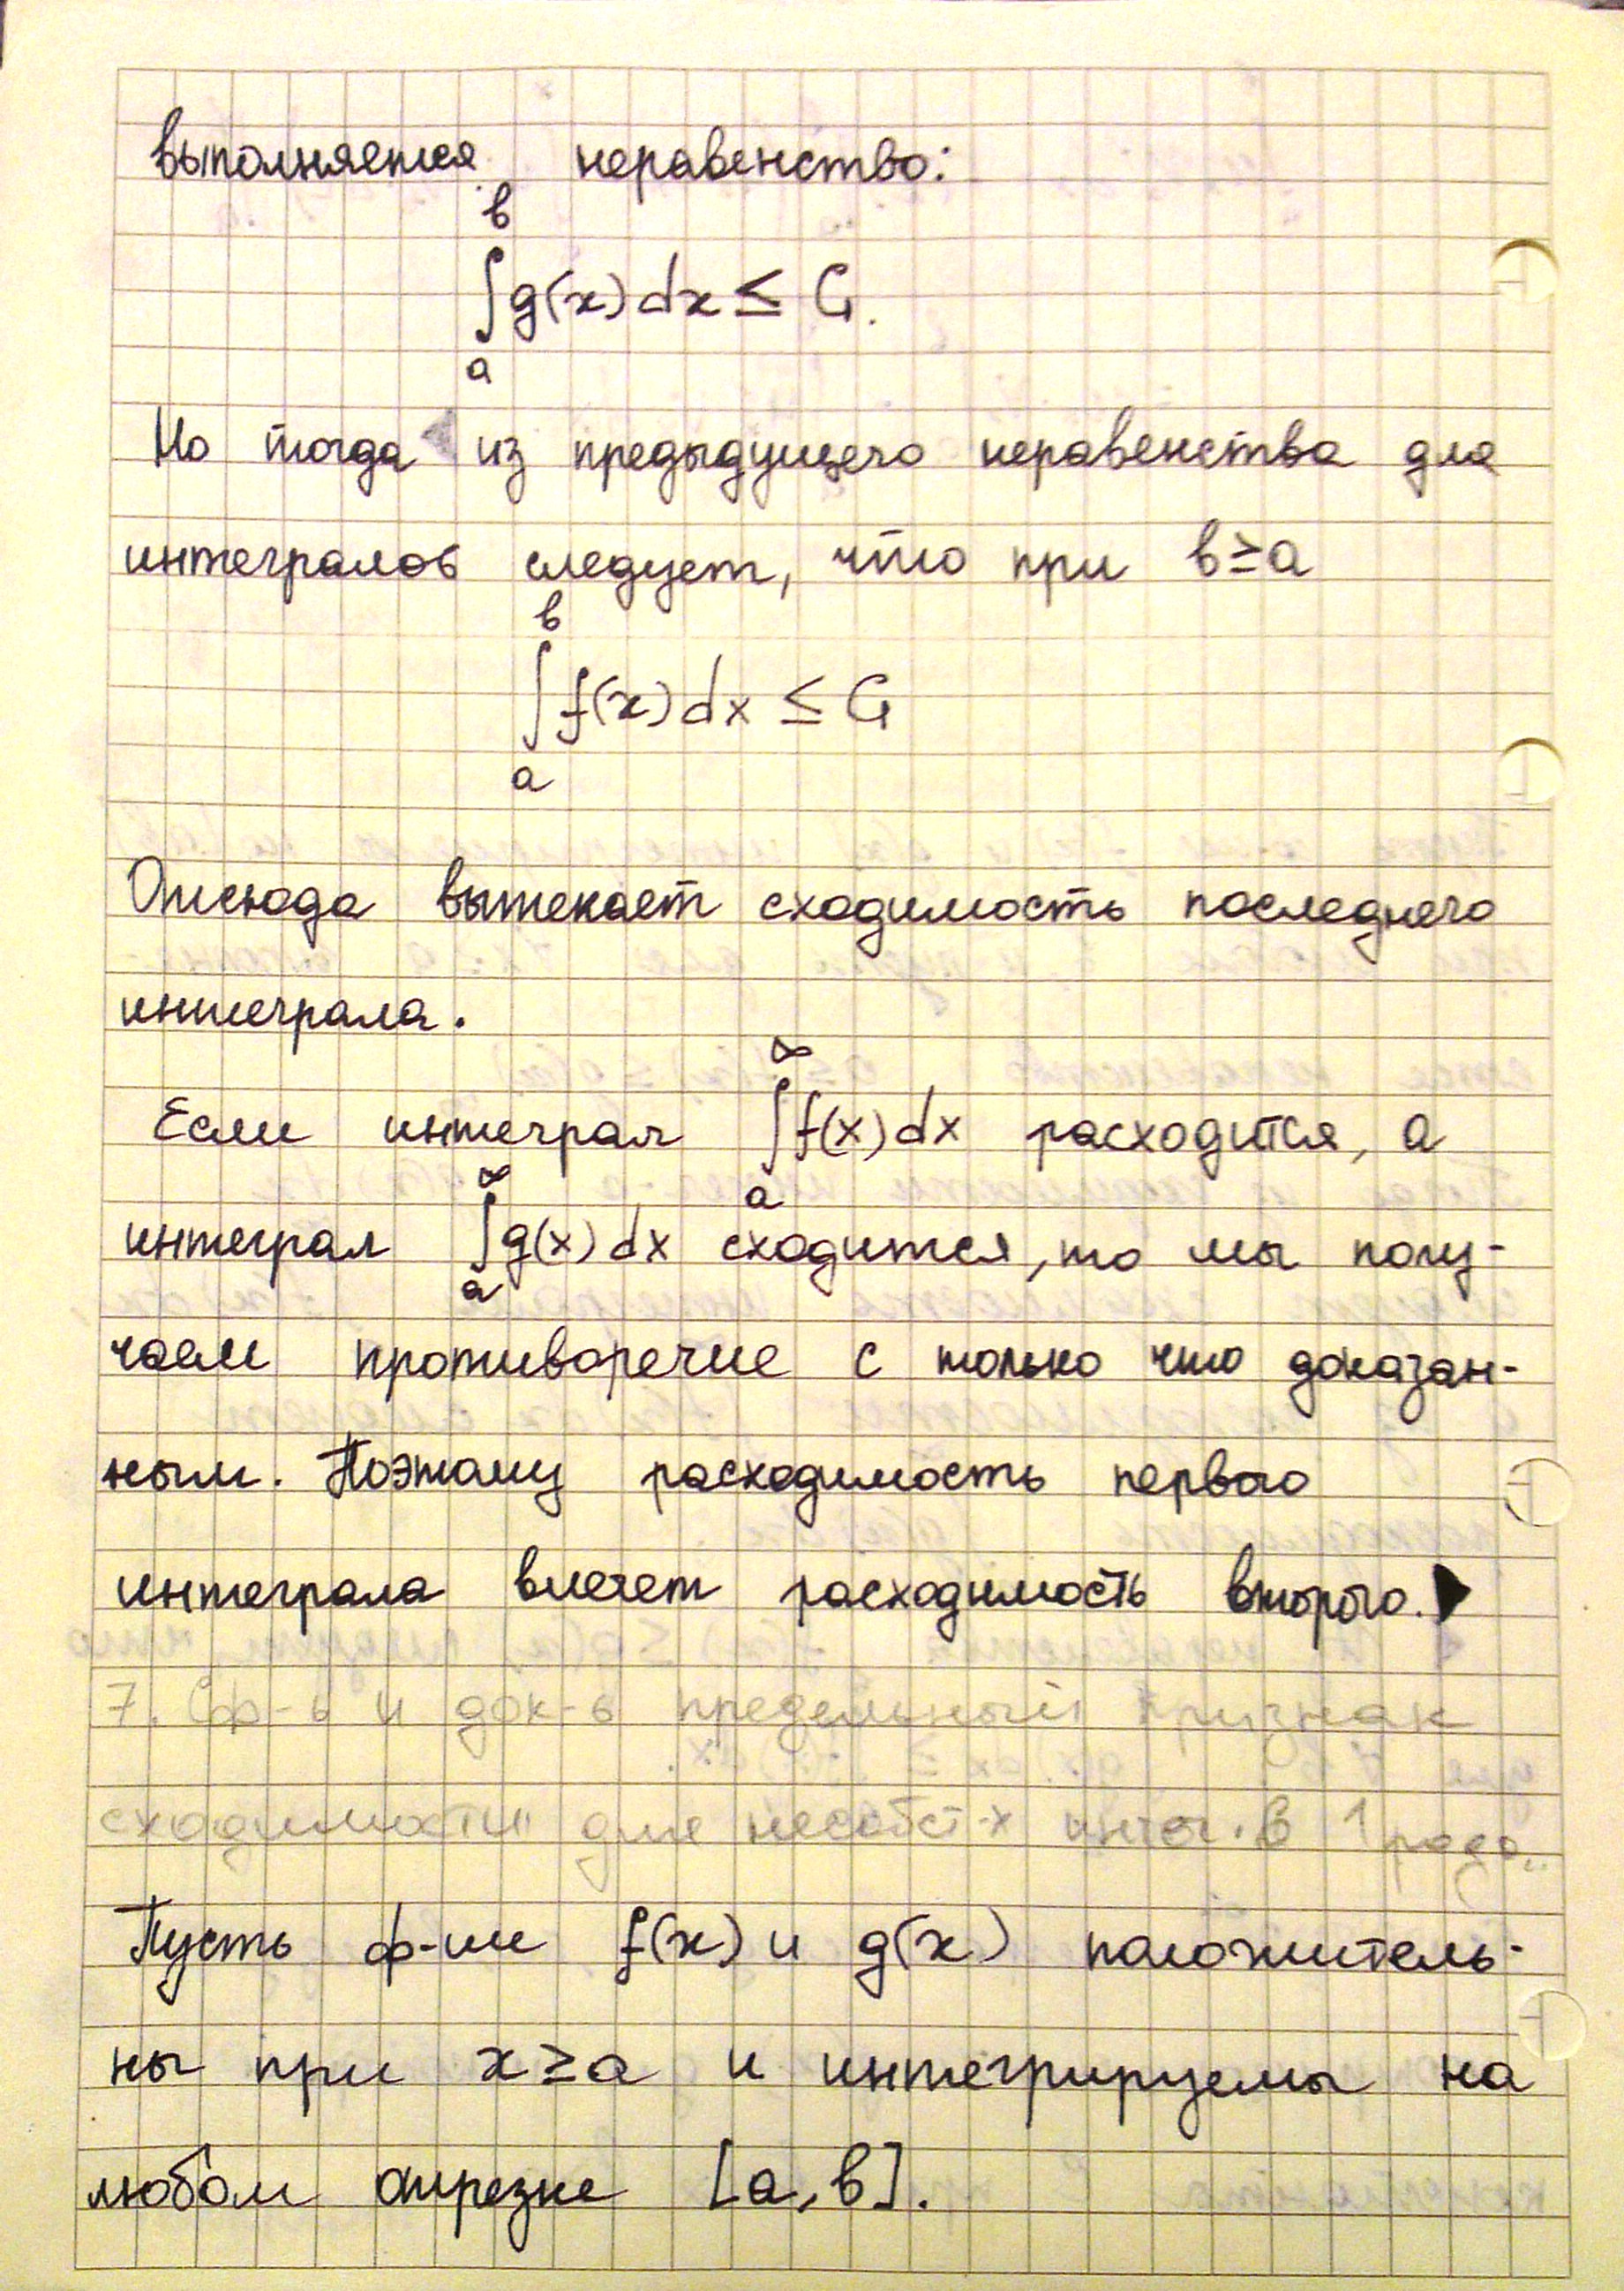 выполняется неравенство:
∫_a^b g(x)dx ≤ G.
Но тогда из предыдущего неравенства для
интегралов следует, что при b≥a
∫_a^b f(x)dx ≤ G
Отсюда вытекает сходимость последнего
интеграла.
Если интеграл ∫_a^∞ f(x)dx расходится, а
интеграл ∫_a^∞ g(x)dx сходится, то мы полу-
чаем противоречие с только что доказан-
ным. Поэтому расходимость первого
интеграла влечет расходимость второго.
7. Сф-ь и док-ь предельный признак
сходимости для несобст-х 1 рода
Пусть ф-ии f(x) и g(x) положитель-
ны при x≥a и интегрируемы на
любом отрезке [a,b].